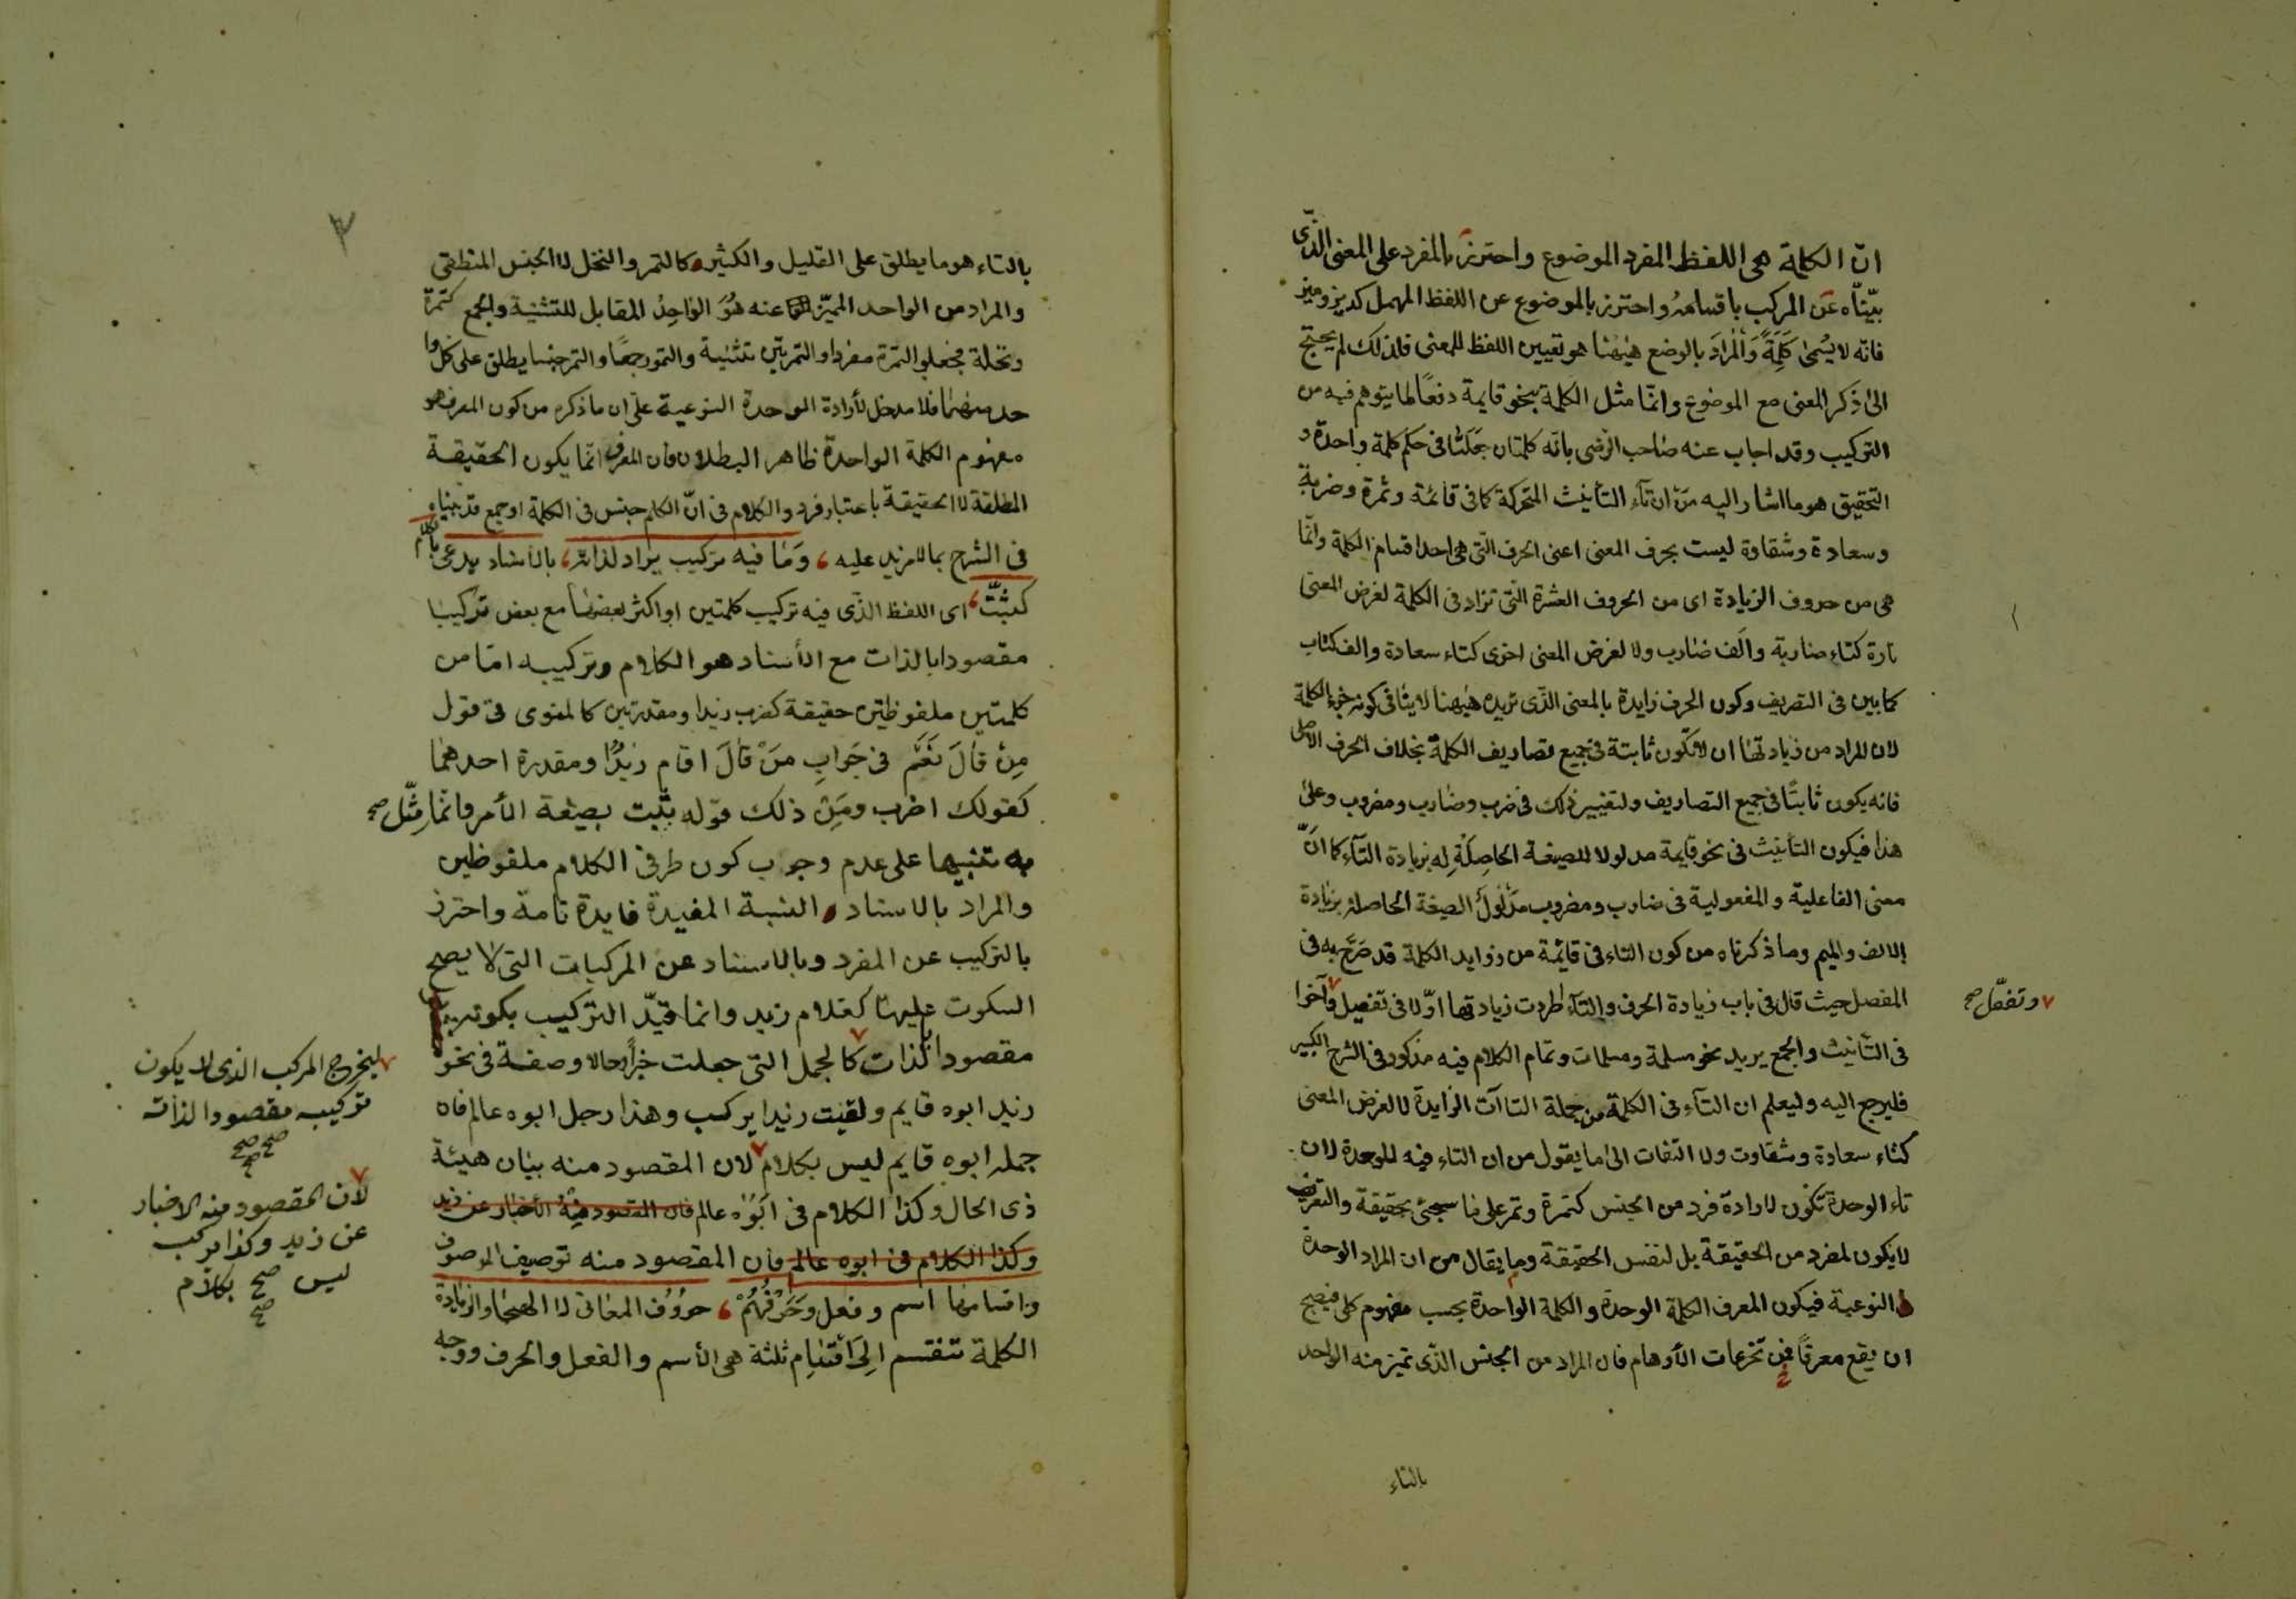 انّ الكلمة هى اللفظ المفرد الموضوع واحترز بالمفرد على المعنى الذى
بيّنّاه عن المركب باقسامه واحترز بالموضوع عن اللفظ المهمل كديز وميز
فانه لا يُسمىٰ كَلِمَةً وَالْمُرادَ بالوضع هيٰهنا هو تعيين اللفظ للمعنى فلذلك لم يحتج
الىٰ ذكر المعنى مع الموضوع وانّما مثل الكلمة بنحو قايمة دفعًا لما يتوهم فيه من
التركيب وقد اجاب عنه صاحب الرضى بانّه كلمتان جعلتا فى حكم كلمة واحدة و
التحقيق هو ما اشار اليه مِنْ ان تآء التأنيث المتحركة كما فى قائمة وثمرة وضربة
وسعادة وشقاوة ليست بحرف المعنى اعنى الحرف الّتى هى احد اقسام الكلمة وانّما
هى من حروف الزيادة اى من الحروف العشرة التّى تزاد فى الكلمة لغرض المعنى
تارة كتاء ضاربة والَف ضٰارب ولا لغرض المعنى اخرى كتاء سعادة والف كتاب
كما بين فى التصريف وكون الحرف زايدة بالمعنى الذّى نريده هيٰهنا لا ينافى كونه جزء الكلمة
لان المراد من زيادتها ان لا تكون ثابتة فى جميع تصاريف الكلمة بخلاف الحرف الاصلى
فانه يكون ثابتًا فى جميع التصاريف ولتغيير ذلك فى ضرب وضٰارب ومضروب وعلىٰ
هذا فيكون التأنيث فى نحو قايمة مدلولا للصيغة الحاصِلَةِ له بزيادة التآء كما انّ
معنى الفاعلية والمفعولية فى ضارب ومضروب مَدْلولُ الصيغة الحاصلة بزيادة
الالف والميم وما ذكرناه من كون التاء فى قائمة من زوايد الكلمة قد صَرّح به فى
المفصل حيث قال فى باب زيادة الحرف والتآء اطردت زيادتها اوّلا فى تفعيل وآخرا
وتفعّل صح
فى التأنيث والجمع يريد نحو مسلمة ومسلمات وتمام الكلام فيه مذكور فى الشرح الكبير
فليرجع اليه وليعلم ان التآء فى الكلمة من جملة التاآت الزايدة لا لغرض المعنى
كتاء سعادة وشقاوت ولا التفات الى ما يقول من ان التاء فيه للوحدة لان
تاء الوحدة تكون لارادة فرد من الجنس كتمرة وتمر على ما سيجئ تحقيقة والتعريف
لا يكون لمفرد من الحقيقة بل لنفس الحقيقة وما يقال من ان المراد الوحدة
النوعية فيكون المعرف الكلمة الوحدة والكلمة الواحدة بحسب مفهوم كلى فيصح
ان يقع معرفًا من تخرعات الأوهام فان المراد من الجنس الذّى تميز منه الواحد
بالتاء
بالتاء هو ما يطلق على القليل والكثير كالتمر والنخل لا الجنس المنطقى
والمراد من الواحد المميّز عنه هُوَ الوٰاحِدُ المقابل للتثنية والجمع كتمرة
ونخلة فجعلوا التمرة مفردا والتمرتين تثنية والتمور جمعًا والتمر جنسا يطلق على كلّ وا
حد منهما فلا مدخل لأرادة الوحدة النوعية علىٰ ان ما ذكره من كون المعرف هو
مفهوم الكلمة الواحدة ظاهر البطلان فان المعرف انّما يكون الحقيقة
المطلقة لا الحقيقة باعتبار فرد والكلام فى انّ الكلم جنس فى الكلمة او جمع قد بيناه
فى الشرح بما لا مزيد عليه ، وَمٰا فيه تركيب يراد لذاته ، بالأسناد يدعى بكلام
كثُبّتْ ، اى اللفظ الذّى فيه تركيب كلمتين او اكثر بعضهٰا مع بعض تركيبا
مقصودا بالذات مع الأسناد هو الكلام وتركيبه امّا من
كلمتين ملفوظتين حقيقة كضرب زيدا ومقدرتين كالمنوى فى قول
مِنْ قٰالَ نَعَمْ فى جَوٰابِ مَنْ قٰالَ اقام زيدٌ او مقدرة احدهمٰا
كقولك اضرب ومِنْ ذلك قوله ثبّت بصيغة الأمر وانّما مثّل صح
به تنبيها على عدم وجوب كون طرفى الكلام ملفوظين
والمراد بالاسناد النسبة المفيدة فايدة تامة واحترز
بالتركيب عن المفرد وبالاسناد عن المركبات التى لا يصح
السكوت عليهٰا كغلام زيد وانما قيّد التركيب بكونه
مقصودا لذاته كالجمل التى جعلت خبرًا وحالا وصفة فى نحو
ليخرج المركب الذى لا يكون
تركيبه مقصودا لذاته
صح صح
زيد ابوه قايم ولقيت زيدا يركب وهذا رجل ابوه عالم فان
جملة ابوه قايم ليس بكلام لان المقصود منه بيٰان هيئة
لان المقصود منه الاخبار
عن زيد وكذا يركب
ليس صح بكلام
صح
ذى الحال وكذا الكلام فى ابُوُه عالم فان المقصود مِنْهُ الأخبار عن زيد
وكذا الكلام فى ابوه عالم فان المقصود منه توصيف الموصوف
واقسامها اسم وفعل وَحَرْفُهُمْ ، حروُف المعانى لا الهجٰا والزيادة
الكلمة تنقسم اِلىٰ اَقْسٰامِ ثلثة هى الأسم والفعل والحرف ووجه